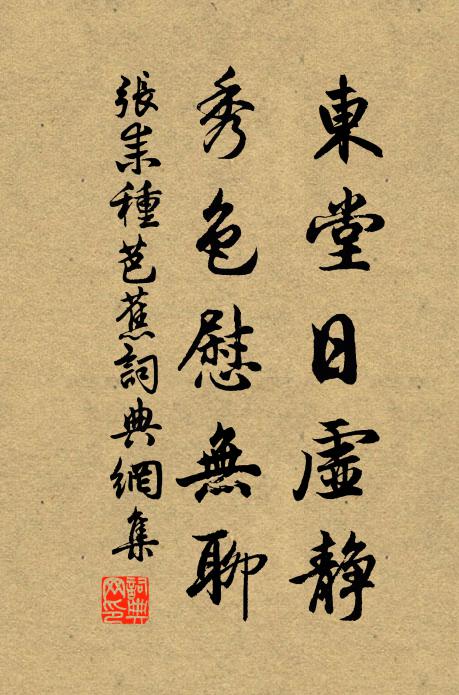 東堂日虛静
秀色慰無聊
張耒種芭蕉詞典網集
詞典網印